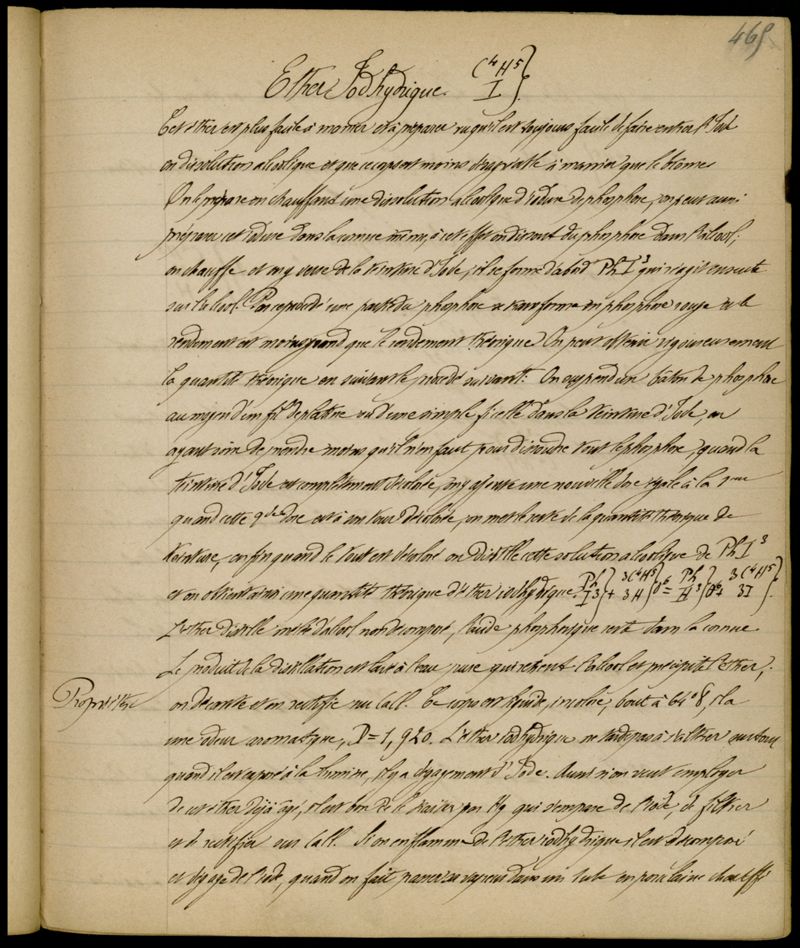 465
Ether Iodhydrique. C4H5 } I }.
Cet éther est plus facile à manier et à préparer vu qu'il est toujours facile de faire entrer l'Iode
en dissolution alcoolique et que ce corps est moins désagréable à manier que le brome.
On le prépare en chauffant une dissolution alcoolique d'iodure de phosphore, on peut aussi
préparer cet iodure dans la cornue même, à cet effet on dissout du phosphore dans l'alcool;
on chauffe et on y verse de la teinture d'Iode, il se forme d'abord PhI3 qui réagit ensuite
sur l'alcool. Par ce procédé une partie du phosphore se transforme en phosphore rouge et le
rendement est moins grand que le rendement théorique. On peut obtenir rigoureusement
la quantité théorique en suivant le procédé suivant: On suspend un bâton de phosphore
au moyen d'un fil de platine ou d'une simple ficelle dans la teinture d'Iode, en
ayant soin de prendre moins qu'il n'en faut pour dissoudre tout le phosphore, quand la
teinture d'Iode est complètement décolorée, on y ajoute une nouvelle dose égale à la 1ère
quand cette 2de dose est à son tour décolorée, on met le reste de la quantité théorique de
teinture, enfin quand le tout est décoloré on distille cette solution alcoolique de PhI3
et on obtient ainsi une quantité théorique d'éther iodhydrique. Ph I3 } + 3C4H5 3H } O6 = Ph H3 } O6 + 3C4H5 3I }.
L'éther distille mêlé d'alcool non décomposé, l'acide phosphoreux reste dans la cornue
Le produit de la distillation est lavé à l'eau pure qui retient l'alcool et précipite l'éther;
Propriétés
on décante et on rectifie sur CaCl. Ce corps est liquide, incolore, bout à 64°8, il a
une odeur aromatique, D=1,920. L'éther iodhydrique ne tarde pas à s'altérer surtout
quand il est exposé à la lumière, il y a dégagement d'Iode. Aussi si on veut employer
de cet éther déjà âgé, il est bon de le traiter par Hg qui s'empare de l'iode, de filtrer
et de rectifier sur CaCl. Si on enflamme de l'éther iodhydrique il est décomposé
et dégage de l'iode, quand on fait passer ses vapeurs dans un tube en porcelaine chauffé